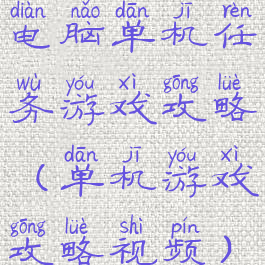 diàn nǎo dān jī rèn
电脑单机任
wù yóu xì gōng lüè
务游戏攻略
dān jī yóu xì
（单机游戏
gōng lüè shì pín
攻略视频）